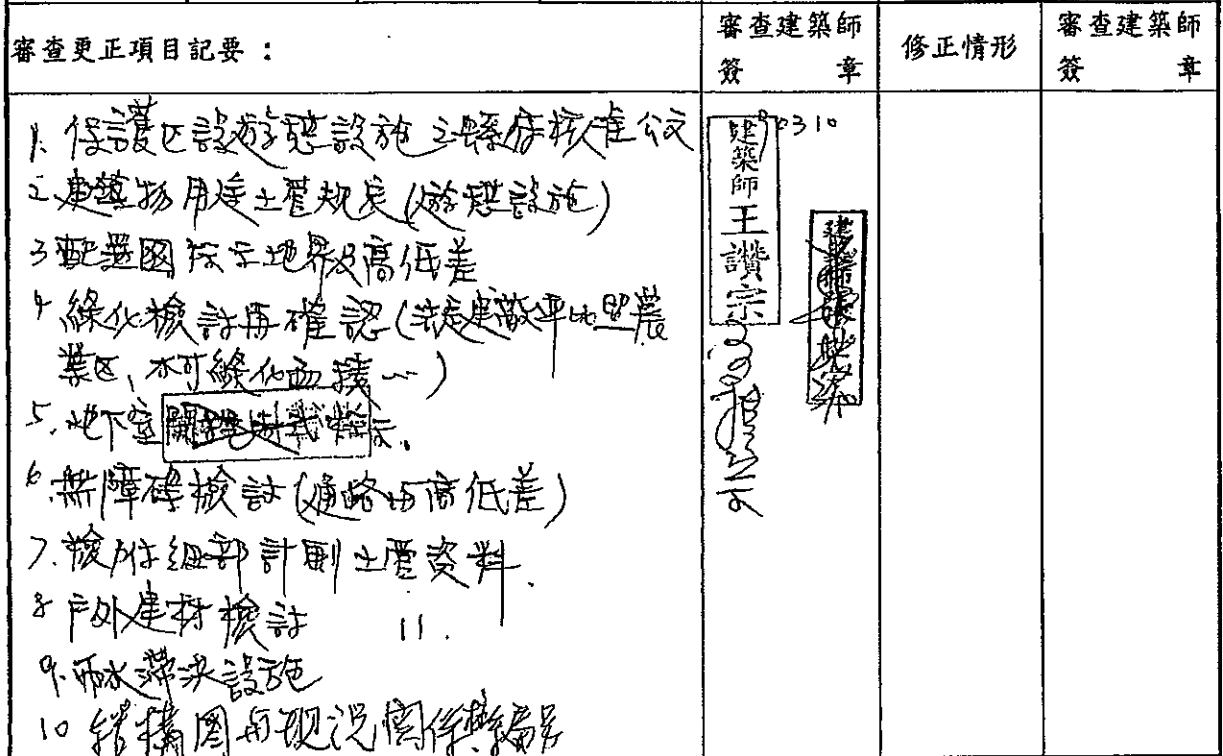 審查更正項目記要：
審查建築師
簽章
修正情形
審查建築師
簽章
1. 保護区設遊憩設施之縣府核准公文
2. 建築物用途土管規定(遊憩設施)
3 配置圖标示地界及高低差
4 綠化檢討再確認(法定建蔽率比照農
業区, 不可綠化面積…)
5. 地下室 示。
6. 無障礙檢討(通路与高低差)
7. 檢附細部計劃土管資料.
8 戶外建材檢討 11.
9. 雨水滯洪設施
10 結構圖与現況関係
建築師王讚宗
0310